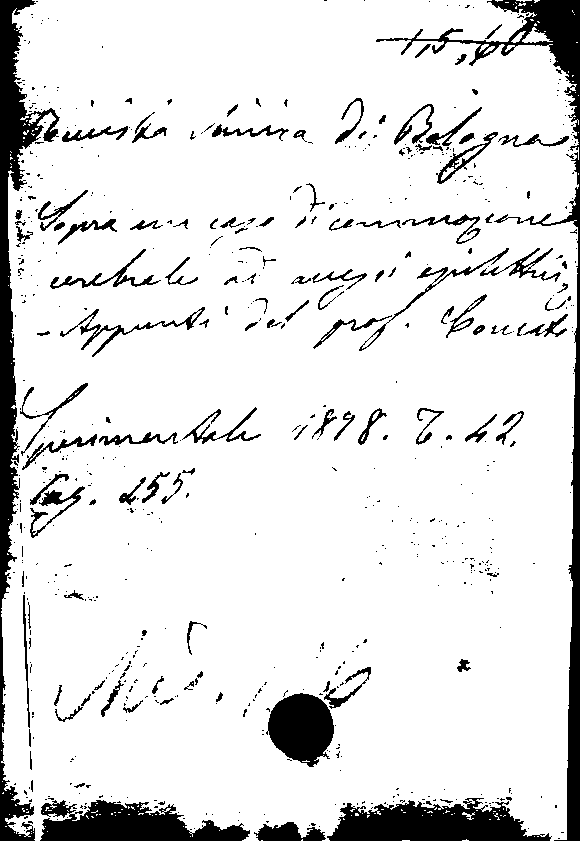 15,60
Rivista clinica di Bologna
Sopra un caso di commozione
cerebrale ad accessi epilettici
- Appunti del prof. Concato
Sperimentale 1878. T. 42.
Pag. 255.
Mis.